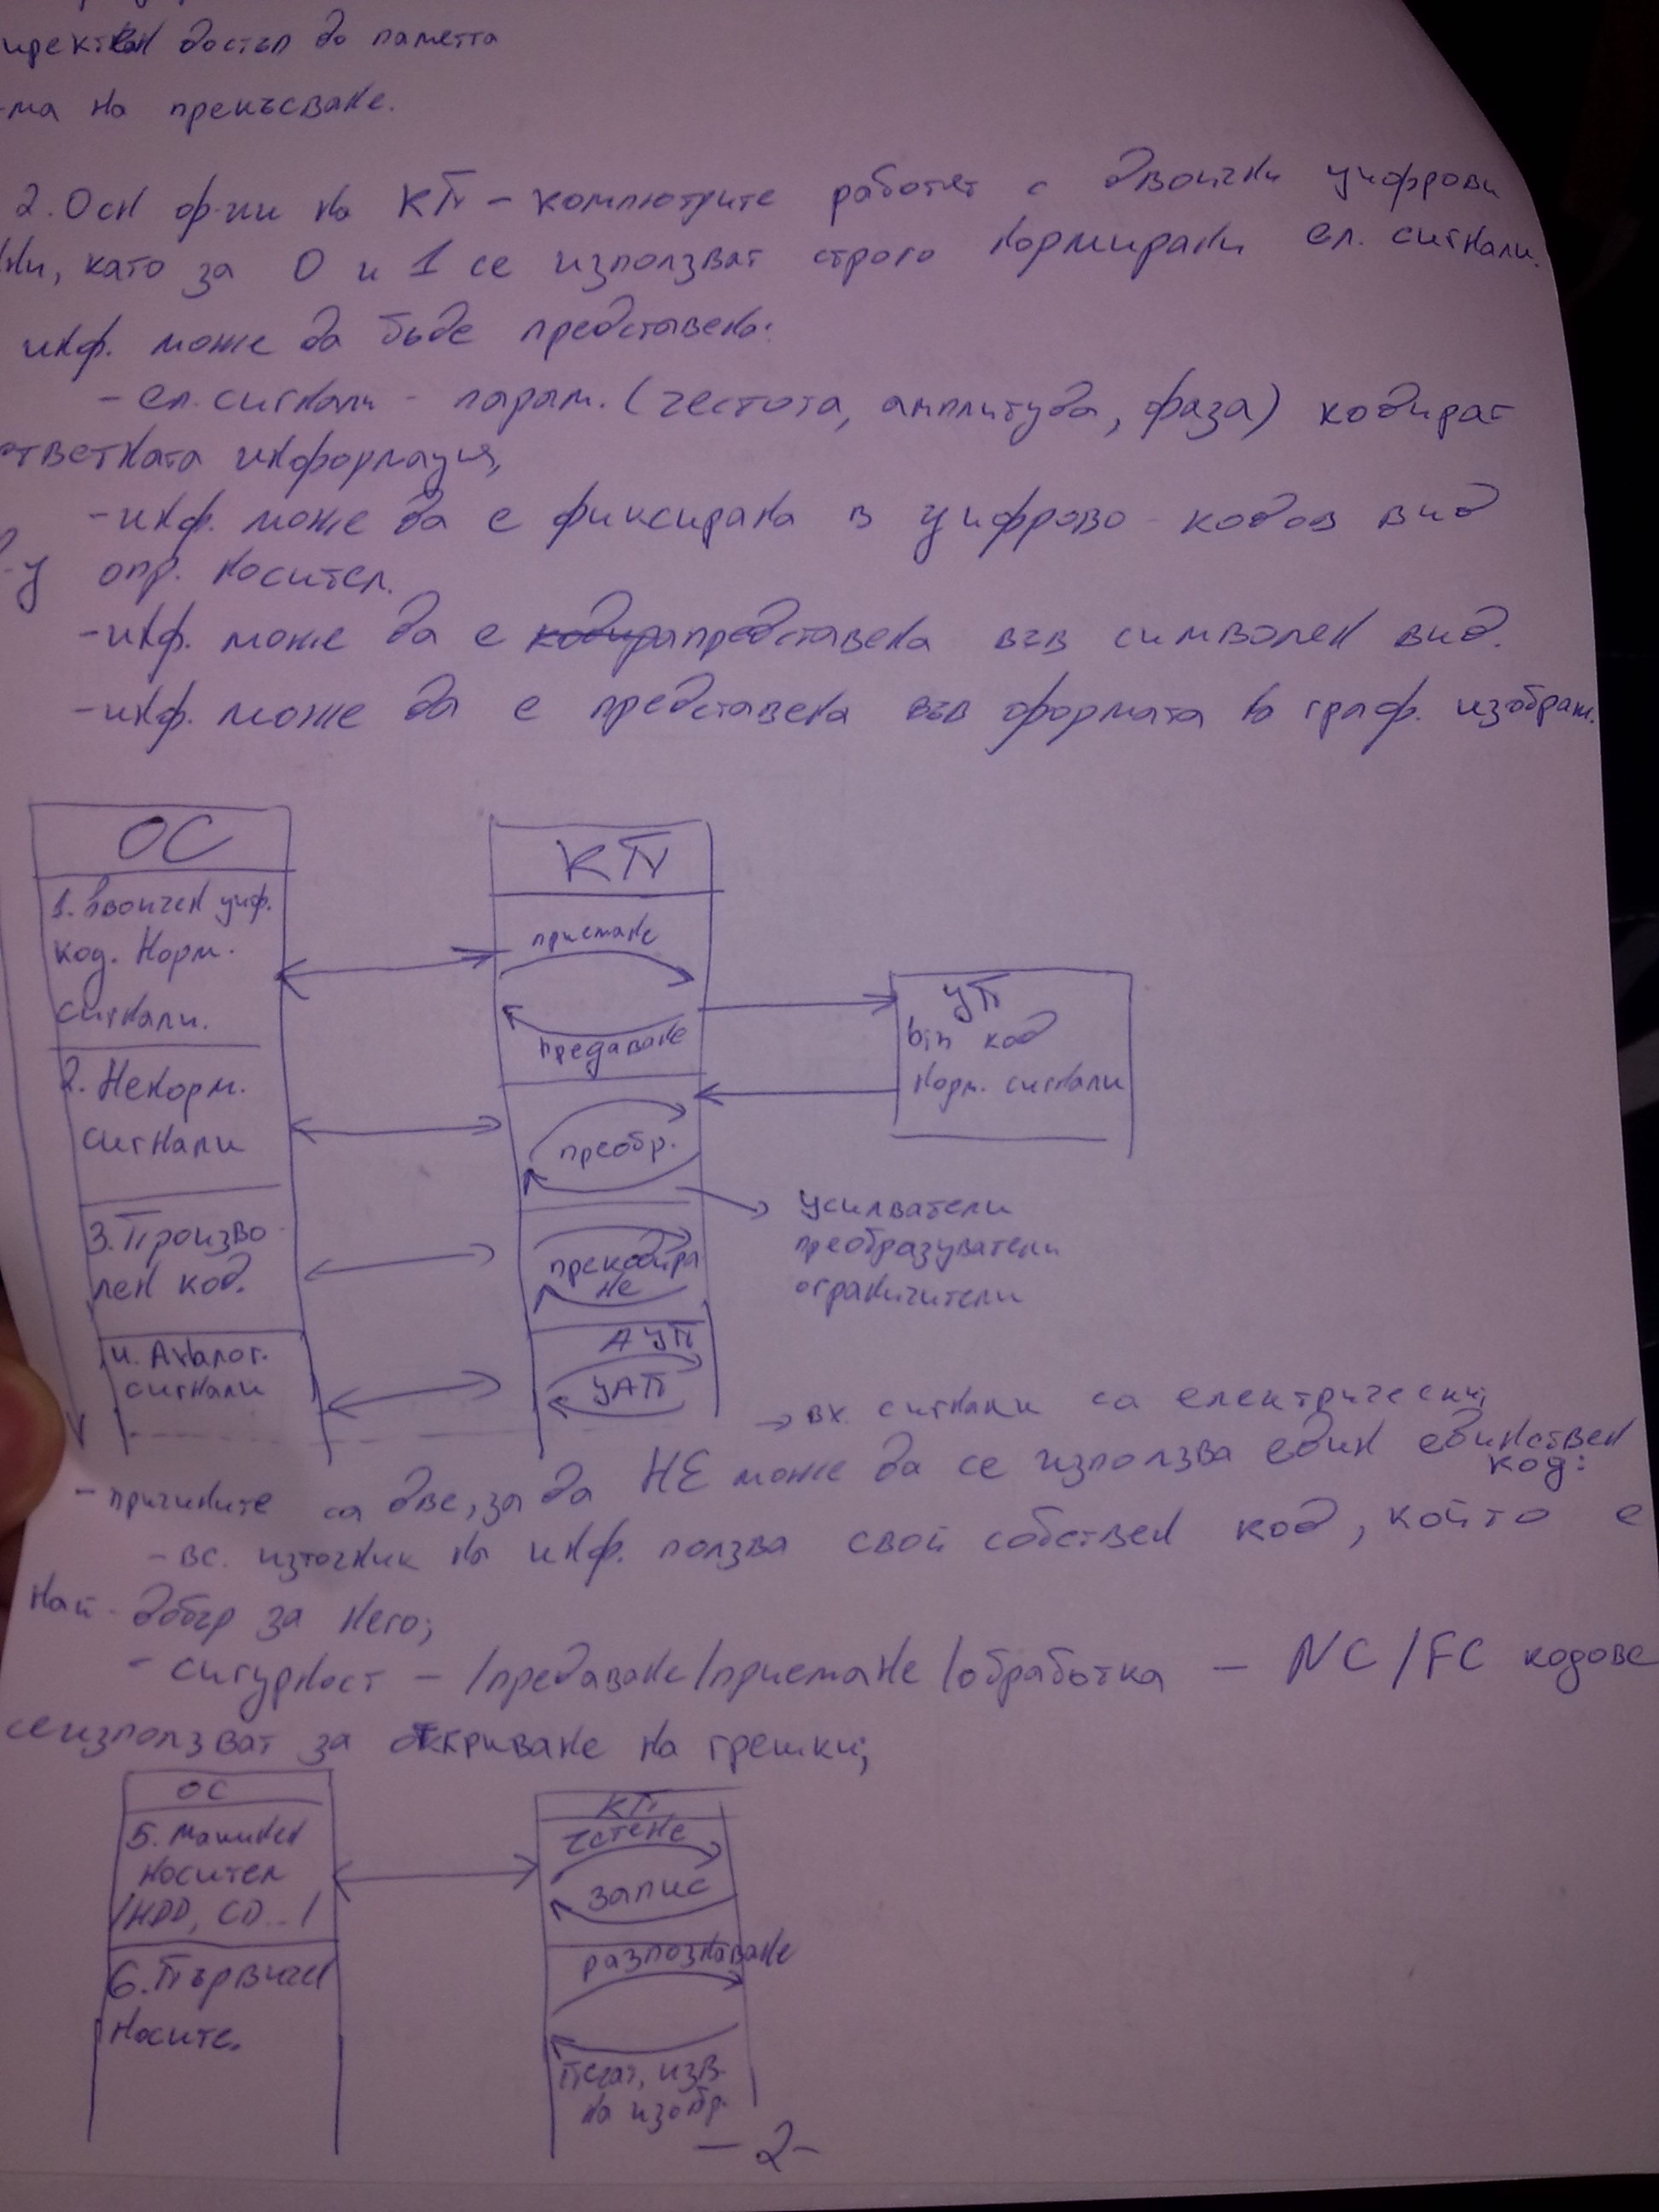 иректен достъп до паметта
-ма на прекъсване.
2. Осн ф-ии на КП - компютрите работят с двоични цифрови
нни, като за 0 и 1 се използват строго нормирани ел. сигнали.
инф. може да бъде представена:
- ел. сигнали - парам. (честота, амплитуда, фаза) кодират
ответната информация,
- инф. може да е фиксирана в цифрово-кодов вид
у опр. носител.
- инф. може да е представена във символен вид.
- инф. може да е представена във формата на граф. изображ.
ОС
1. Двоичен циф.
код. Норм.
сигнали.
2. Ненорм.
сигнали
3. Произво-
лен код.
4. Аналог.
сигнали
КП
приемане
предаване
преобр.
прекодира
не
АЦП
ЦАП
УП
bin код
норм. сигнали
усилватели
преобразуватели
ограничители
→ вх. сигнали са електрически;
- причините са две, за да НЕ може да се използва един единствен
код:
- вс. източник на инф. ползва свой собствен код, който е
най-добър за него;
- сигурност - /предаване/приемане/обработка - NC/FC кодове
се използват за откриване на грешки;
ОС
5. Машинен
носител
/HDD, CD.../
6. Първичен
носите.
КП
четене
запис
разпознаване
Печат, изв.
на изобр.
- 2 -